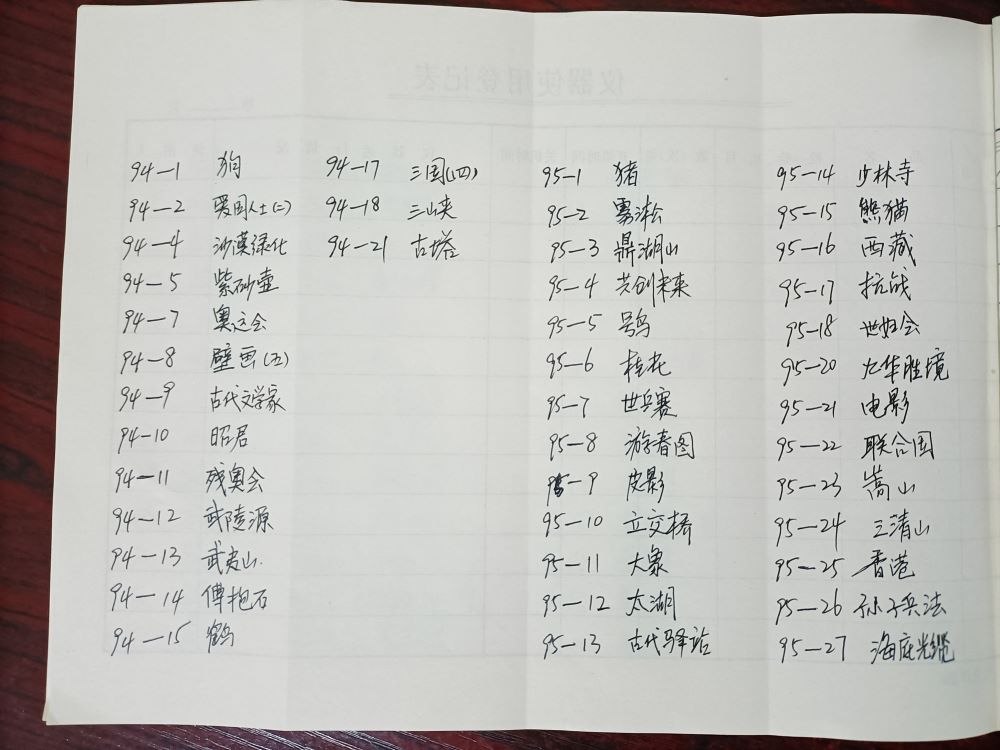 94—1 狗
94—2 爱国人士(二)
94—4 沙漠绿化
94—5 紫砂壶
94—7 奥运会
94—8 壁画(五)
94—9 古代文学家
94—10 昭君
94—11 残奥会
94—12 武陵源
94—13 武夷山.
94—14 傅抱石
94—15 鹤
94—17 三国(四)
94—18 三峡
94—21 古塔
95—1 猪
95—2 雾淞
95—3 鼎湖山
95—4 共创未来
95—5 鸮
95—6 桂花
95—7 世乒赛
95—8 游春图
95—9 皮影
95—10 立交桥
95—11 大象
95—12 太湖
95—13 古代驿站
95—14 少林寺
95—15 熊猫
95—16 西藏
95—17 抗战
95—18 世妇会
95—20 九华胜境
95—21 电影
95—22 联合国
95—23 嵩山
95—24 三清山
95—25 香港
95—26 孙子兵法
95—27 海底光缆